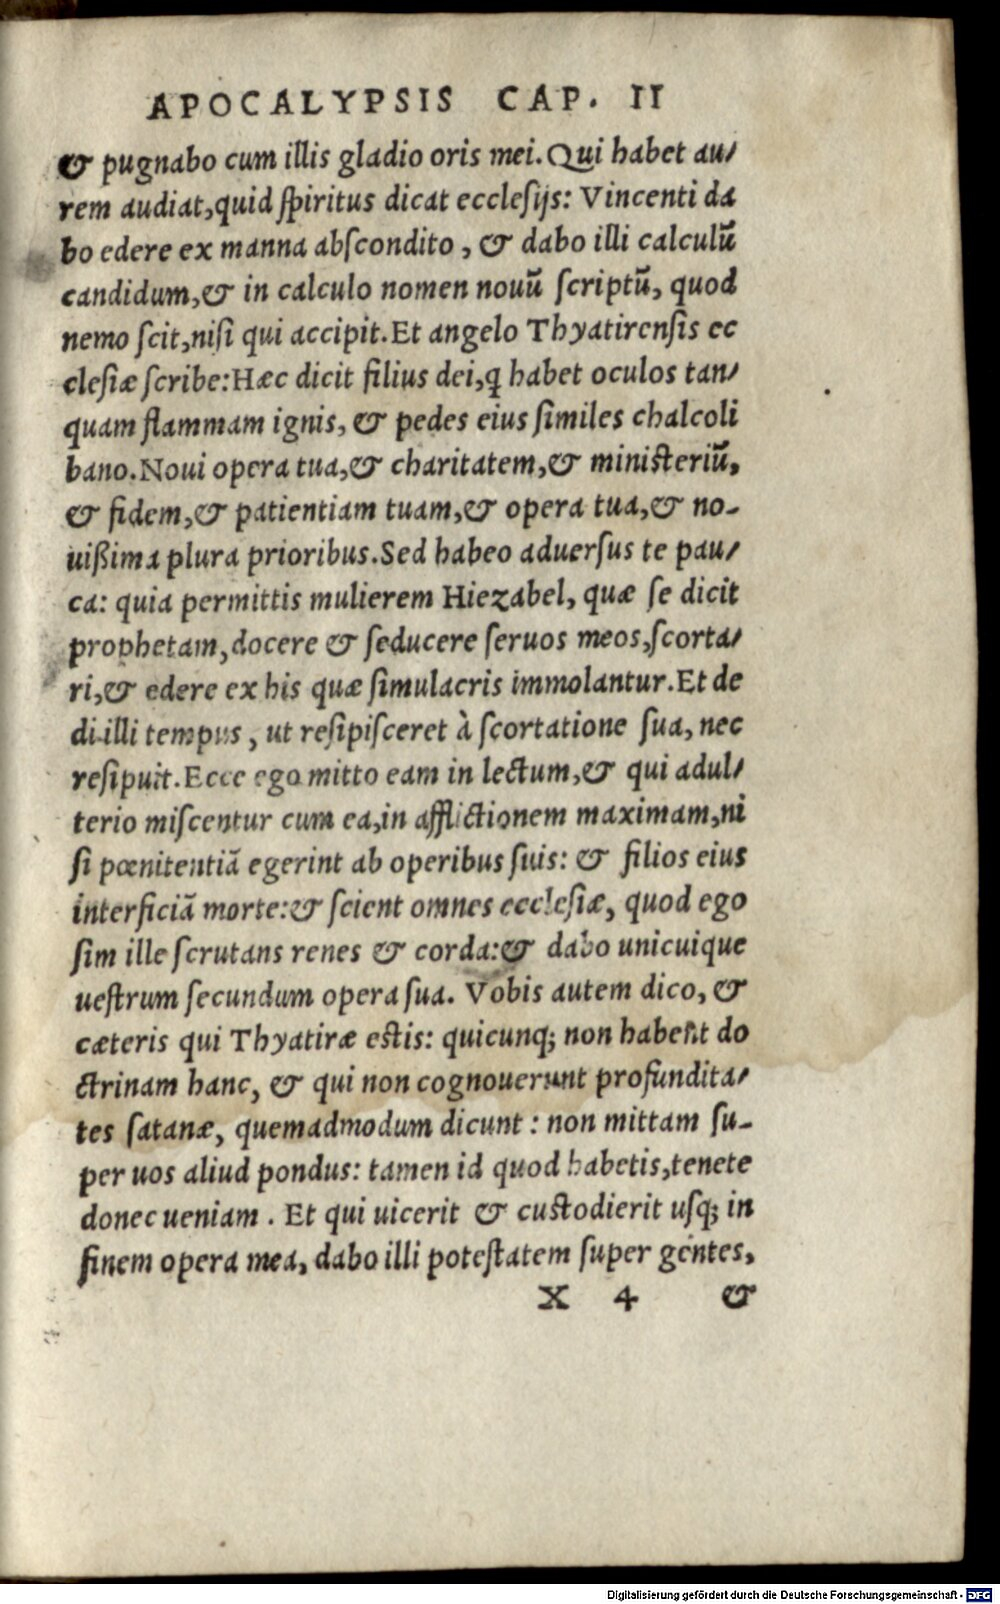 APOCALYPSIS CAP. II
& pugnabo cum illis gladio oris mei. Qui habet au/
rem audiat, quid ſpiritus dicat eccleſijs: Vincenti da
bo edere ex manna abſcondito, & dabo illi calculū
candidum, & in calculo nomen nouū ſcriptū, quod
nemo ſcit, niſi qui accipit. Et angelo Thyatirenſis ec
cleſiæ ſcribe: Hæc dicit filius dei, ꝗ habet oculos tan/
quam flammam ignis, & pedes eius ſimiles chalcoli
bano. Noui opera tua, & charitatem, & miniſteriū,
& fidem, & patientiam tuam, & opera tua, & no-
uißima plura prioribus. Sed habeo aduerſus te pau/
ca: quia permittis mulierem Hiezabel, quæ ſe dicit
prophetam, docere & ſeducere ſeruos meos, ſcorta/
ri, & edere ex his quæ ſimulacris immolantur. Et de
di illi tempus, ut reſipiſceret à ſcortatione ſua, nec
reſipuit. Ecce ego mitto eam in lectum, & qui adul/
terio miſcentur cum ea, in afflictionem maximam, ni
ſi pœnitentiā egerint ab operibus ſuis: & filios eius
interficiā morte: & ſcient omnes eccleſiæ, quod ego
ſim ille ſcrutans renes & corda: & dabo unicuique
ueſtrum ſecundum opera ſua. Vobis autem dico, &
cæteris qui Thyatiræ eſtis: quicunq; non habent do
ctrinam hanc, & qui non cognouerunt profundita/
tes ſatanæ, quemadmodum dicunt: non mittam ſu-
per uos aliud pondus: tamen id quod habetis, tenete
donec ueniam. Et qui uicerit & cuſtodierit uſq; in
finem opera mea, dabo illi poteſtatem ſuper gentes,
X 4 &
Digitalisierung gefördert durch die Deutsche Forschungsgemeinschaft - DFG